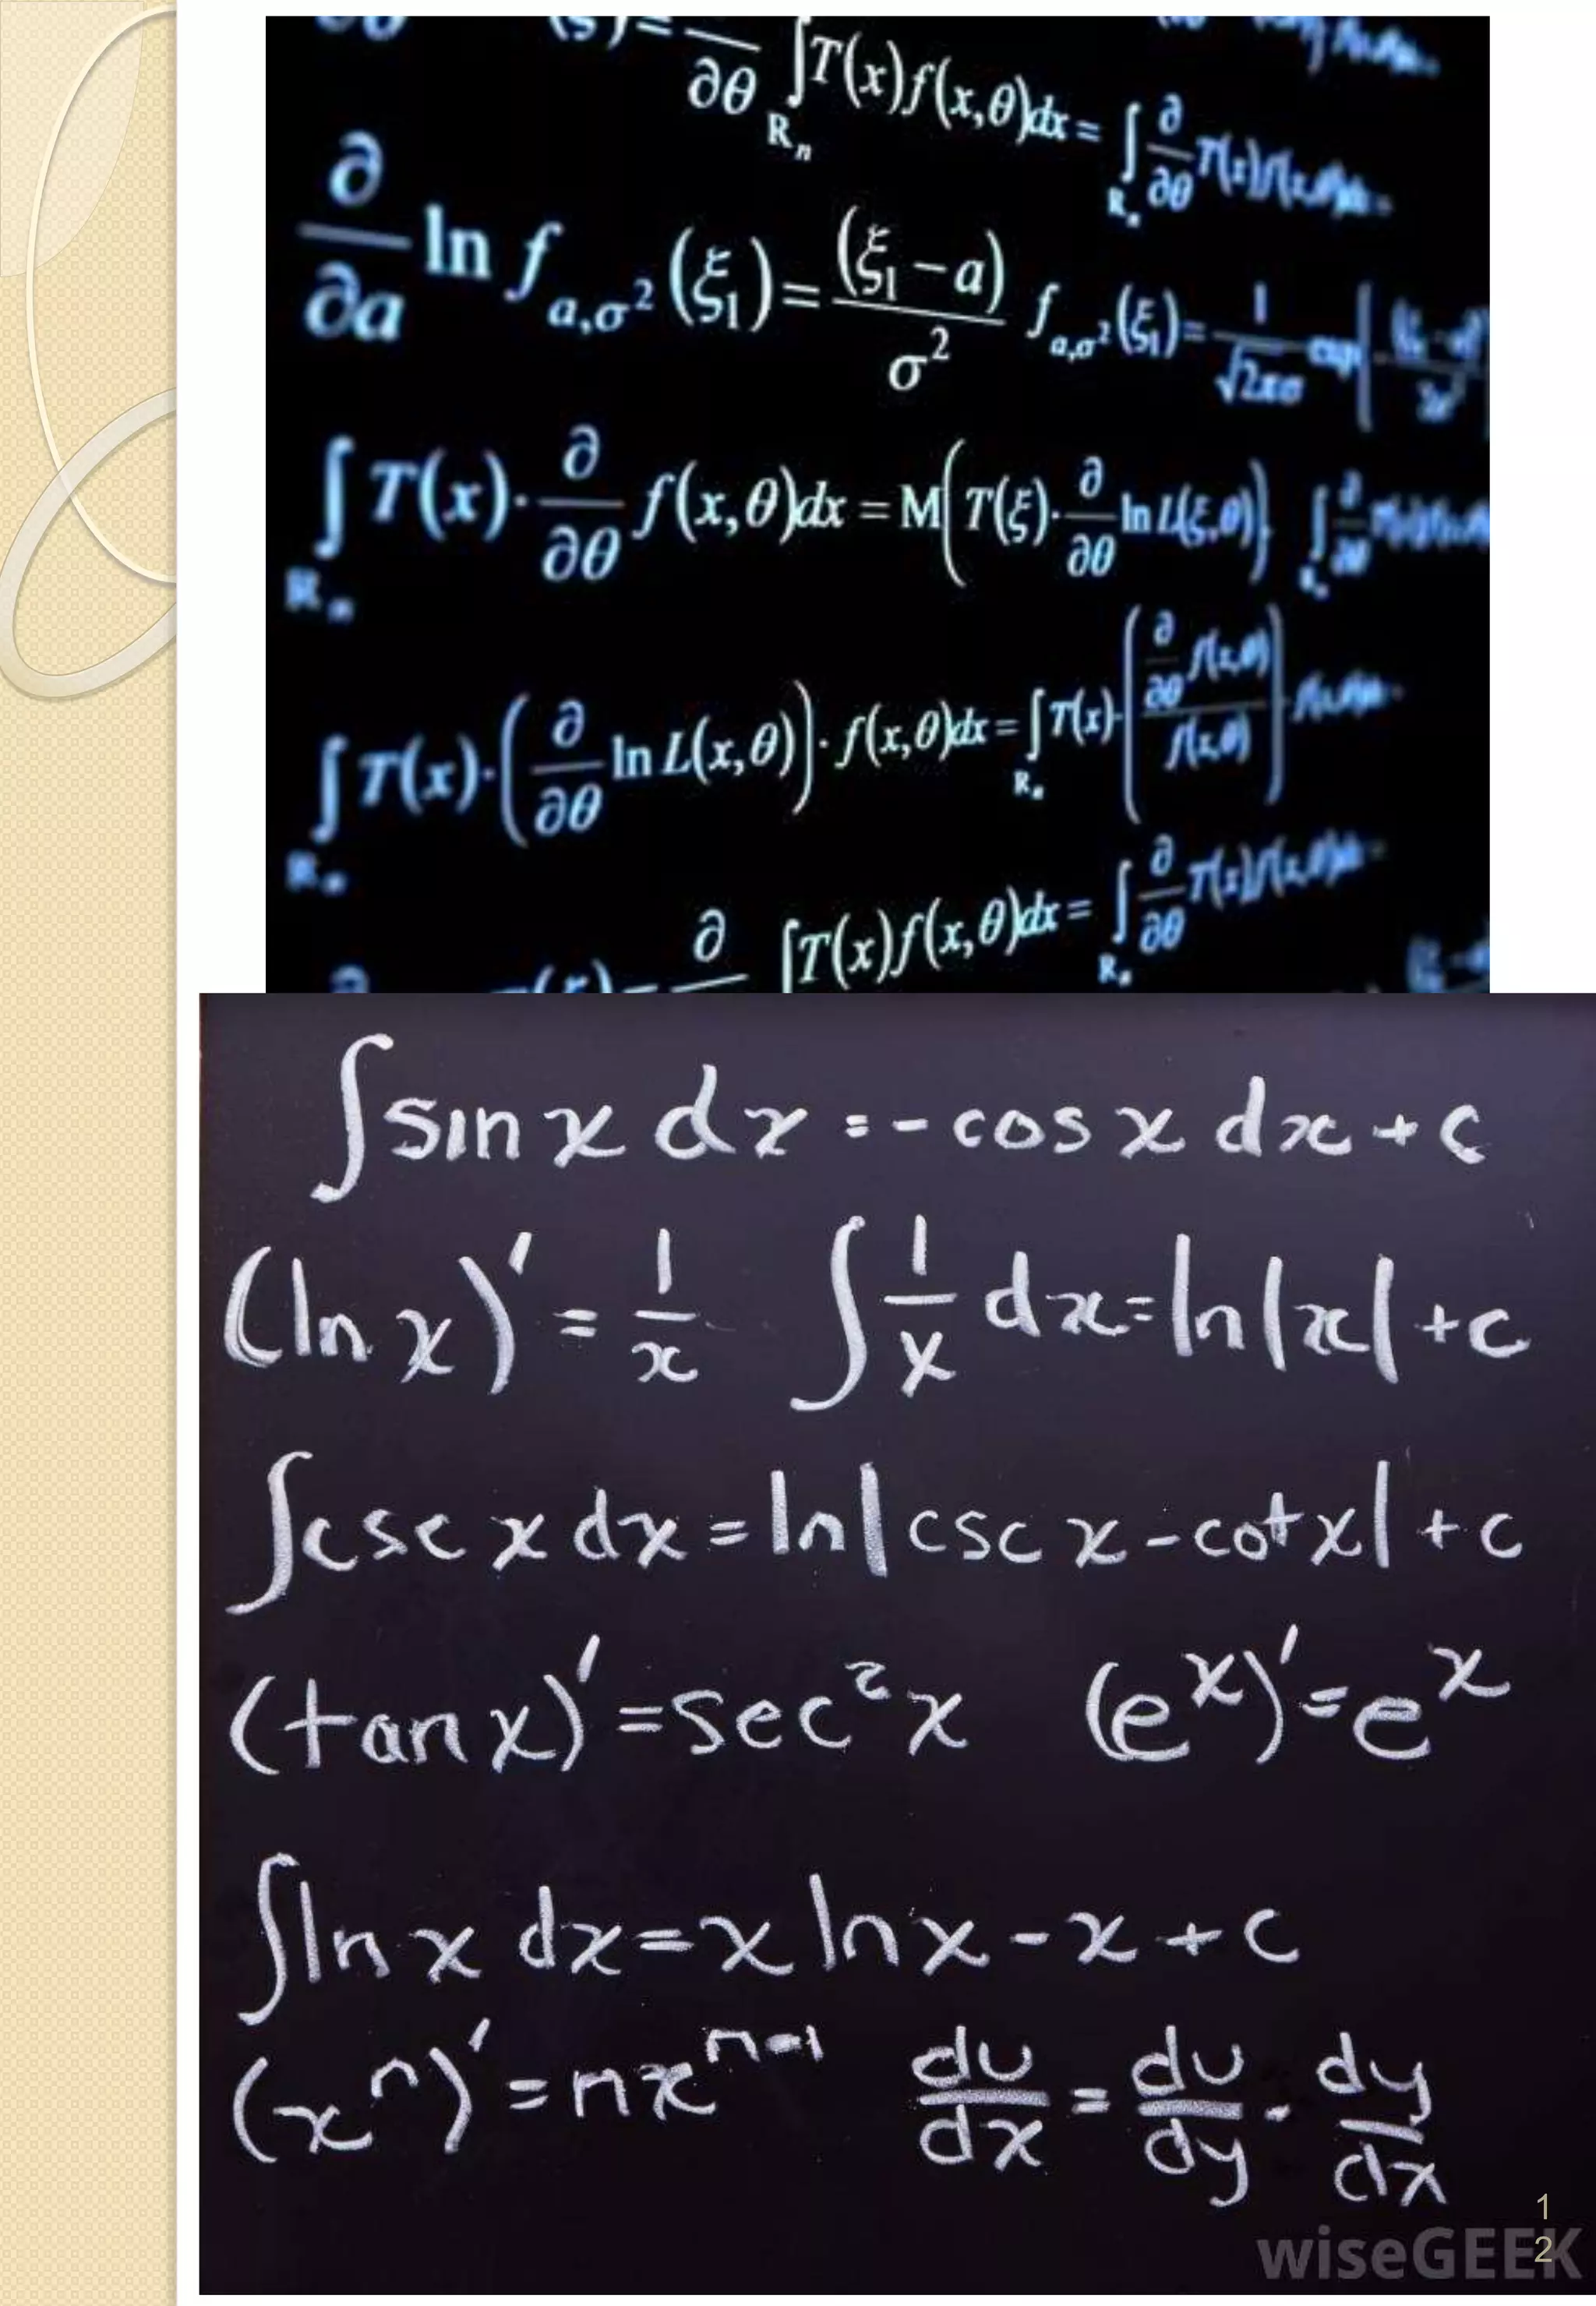 ∂θ ∫T(x)f(x,θ)dx = ∫ ∂/∂θ T(x)f(x,θ)dx
R n R n
∂/∂a ln f a,σ² (ξ₁) = (ξ₁ − a)/σ² f a,σ² (ξ₁) = 1/√2πσ exp
∫ T(x)· ∂/∂θ f(x,θ)dx = M( T(ξ)· ∂/∂θ ln L(ξ,θ) ) ∫ ∂/∂θ
R n
∫ T(x)·( ∂/∂θ ln L(x,θ) )· f(x,θ)dx = ∫ T(x)·( ∂/∂θ f(x,θ) / f(x,θ) )
R n R n
∂ ∫T(x)f(x,θ)dx = ∫ ∂/∂θ T(x)f(x,θ)dx
R n
∫sin x dx = - cos x dx + c
(ln x)' = 1/x ∫ 1/x dx = ln|x| + c
∫csc x dx = ln|csc x - cot x| + c
(tan x)' = sec² x (eˣ)' = eˣ
∫ln x dx = x ln x - x + c
(xⁿ)' = nxⁿ⁻¹ du/dx = du/dy · dy/dx
12
wiseGEEK